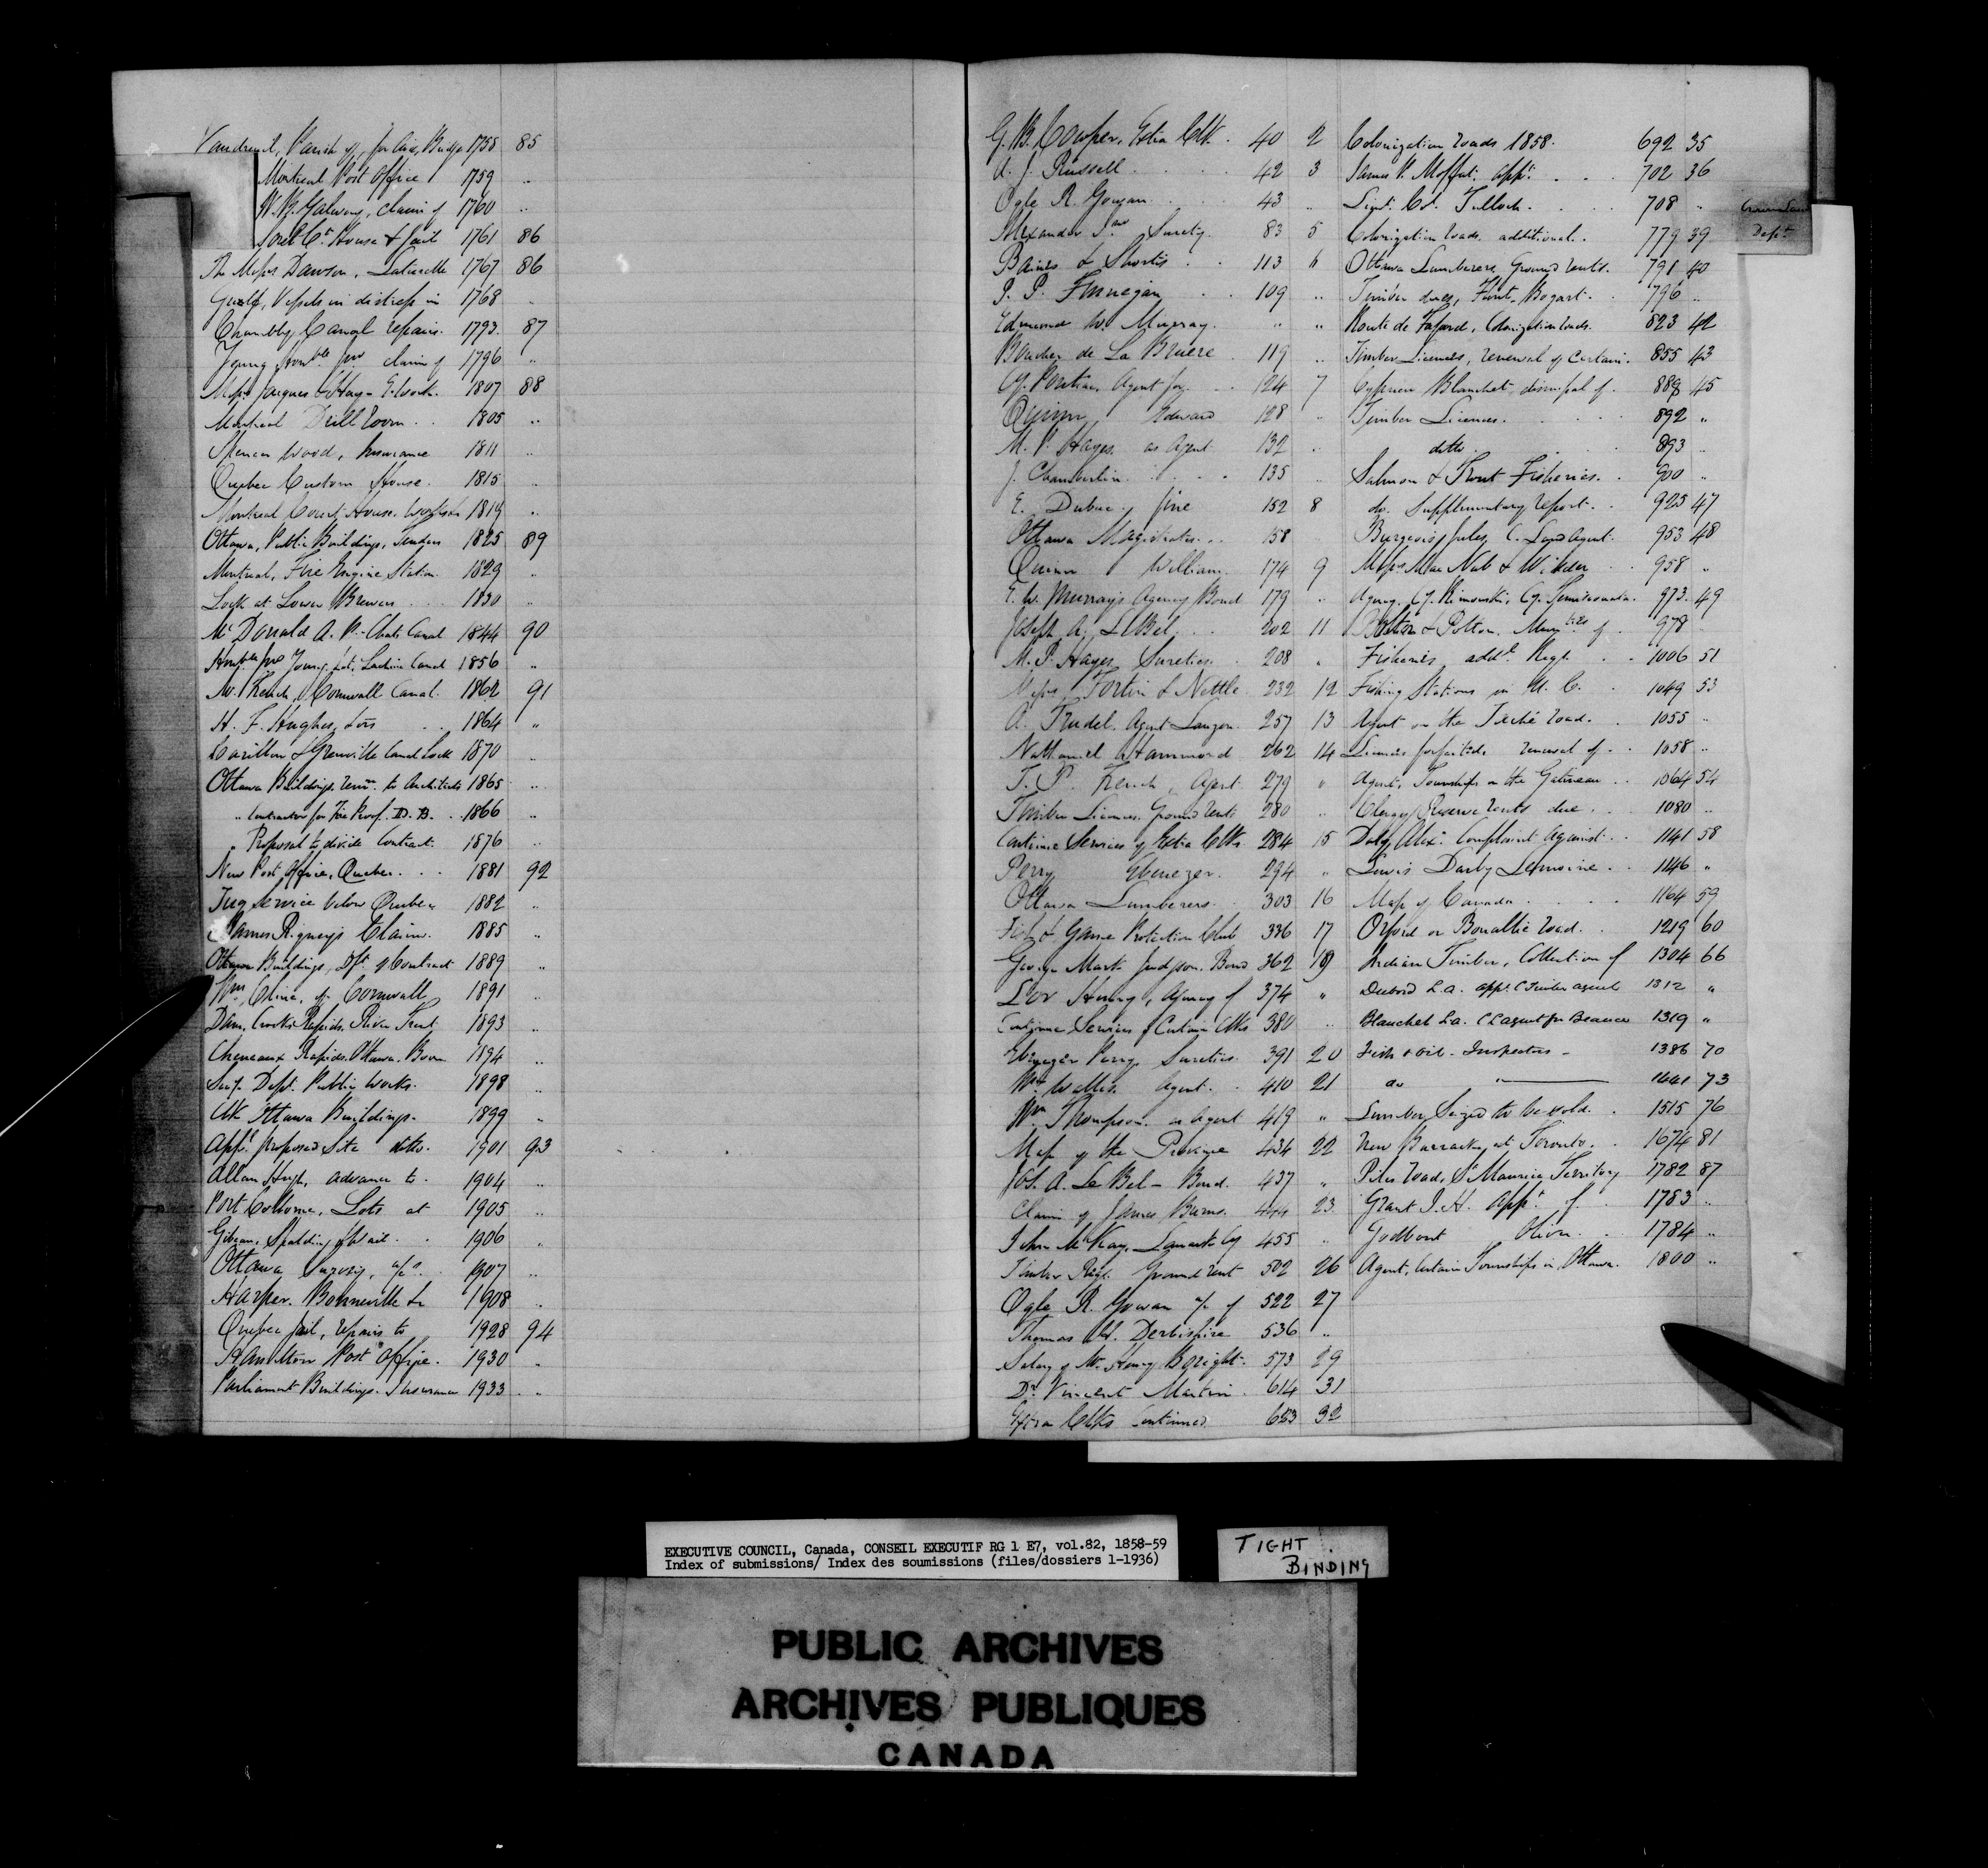 Vaudreuil, Parish of, for aid, Bridge 1758 85
Montreal Post Office 1759 "
W. B. Galwey, Claim of 1760 "
Sorel Ct House & Jail 1761 86
The Messrs Dawson, 1767 86
Gulf, Vessels in distress in 1768 "
Chambly Canal repairs. 1793 87
Young Honble Jno claim of 1796 "
Messrs Jacques & Hay 1807 88
Montreal Drill Room 1805 "
Spencer Wood, Insurance 1811 "
Quebec Custom House. 1815 "
Montreal Court House. 1819 "
Ottawa, Public Buildings, Tenders 1825 89
Montreal, Fire Engine Station 1829 "
Lock at Lower Brewers 1830 "
McDonald A. P. Chats Canal 1844 90
Honble Jno Young, Lachine Canal 1856 "
W. French, Cornwall Canal. 1862 91
H. F. Hughes, 1864 "
Carillon & Grenville Canal Lock 1870 "
Ottawa Buildings, to Architects 1865 "
" Contractor for Fire Proof. D. B. 1866 "
" Proposal to divide Contract 1876 "
New Post Office, Quebec. 1881 92
Tug Service below Quebec 1882 "
James Rigney's Claim. 1885 "
Ottawa Buildings, of Contract 1889 "
Wm Cline, of Cornwall 1891 "
Dam, Crooks Rapids, River Trent 1893 "
Cheneaux Rapids, Ottawa, Boom 1894 "
Secy. Dept. Public Works. 1898 "
Clk Ottawa Buildings. 1899 "
Appl proposed Site ditto. 1901 93
Allan Hugh, advance to. 1904 "
Port Colborne, Lots at 1905 "
Gibson, Spalding & Wait. 1906 "
Ottawa 1907 "
Harper. Bonneville 1908 "
Quebec Jail, repairs to 1928 94
Hamilton Post Office. 1930 "
Parliament Buildings. Insurance 1933 "
G. B. Cowper, Extra Clk. 40 2
A. J. Russell 42 3
Ogle R. Gowan 43 "
Alexander Surety. 83 5
Baines & Shortis 113 6
P. P. Finnegan 109 "
Edmund W. Murray. " "
Boucher de La Bruere 119 "
Cy. Pontiac, Agent for 124 7
Quinn Edward 128 "
M. P. Hayes as Agent 132 "
J. Chamberlin 135 "
E. Dubuc, fine 152 8
Ottawa Magistrates 158
Quinn William 174 9
E. W. Murray's Agency Bond 179 "
Joseph A. LeBel 202 11
M. P. Hayes, Sureties 208 "
Messrs Fortin & Nettle 232 12
A. Trudel, Agent Lauzon 257 13
Nathaniel Hammond 262 14
T. P. French, Agent 279 "
Timber Licences Ground rents 280 "
Continue Services of Extra Clks 284 15
Perry Ebenezer. 294 "
Ottawa Lumberers 303 16
Fish & Game Protection Club 336 17
George Mark Judgson, Bond 362 18
Lor Henry, Agency of 374 "
Continue Services of Certain Clks 380 "
Ebenezer Perry, Sureties 391 20
Wm Waller, Agent 410 21
Wm Thompson as Agent 419 "
Map of the Province 434 22
Jos. A. Le Bel - Bond. 437 "
Claim of James Burns. 444 23
John McKay, Lanark Cy 455 "
Timber Regl. Ground rent 502 26
Ogle R. Gowan a/c of 522 27
Thomas W. Derbishire 536 "
Salary of Mr Henry Boright. 573 29
Dr Vincent Martin 614 31
Extra Clks Continued 653 32
Colonization roads 1858. 692 35
James P. Moffat. appt. 702 36
Lieut. Col. Tulloch. 708 "
Colonization roads, additional. 779 39
Ottawa Lumberers, Ground rents. 791 40
Timber dues, Flint, Bogart. 796 "
Route de Faford, Colonization roads. 823 42
Timber Licences, renewal of Certain. 855 43
Cyprien Blanchet, dismissal of. 888 45
Timber Licences. 892 "
ditto 893 "
Salmon & Trout Fisheries. 900 "
do. Supplementary report. 925 47
Bourgeois Jules, C. Land Agent. 953 48
Messrs MacNab & Wilder 958 "
Agency. Cy. Rimouski, Cy. Temiscouata. 973 49
Bolton & Potton. of 978 "
Fisheries, addl. Regl. 1006 51
Fishing Stations in U. C. 1049 53
Agent on the Taché road. 1055 "
Licences forfeited, renewal of 1058 "
Agent, Townships on the Gatineau 1064 54
Clergy Reserve rents due 1080 "
Daly Alex. Complaint Against 1141 58
Lewis Darby Lemoine 1146 "
Map of Canada 1164 59
Orford or Bonallie road. 1219 60
Indian Timber, Collection of 1304 66
Dubord L. A. appt. C Timber agent 1312 "
Blanchet La. C L agent for Beauce 1319 "
Fish & Oil - Inspectors - 1386 70
do " 1441 73
Lumber, Seized to be sold. 1515 76
New Barracks at Toronto. 1674 81
Piles Road, St Maurice Territory 1782 87
Grant J. H. appt of 1783 "
Godbout Olivr 1784 "
Agent, Certain Townships in Ottawa. 1800 "
Crown Land
Dept
EXECUTIVE COUNCIL, Canada, CONSEIL EXECUTIF RG 1 E7, vol.82, 1858-59
Index of submissions/ Index des soumissions (files/dossiers 1-1936)
TIGHT
BINDING
PUBLIC ARCHIVES
ARCHIVES PUBLIQUES
CANADA